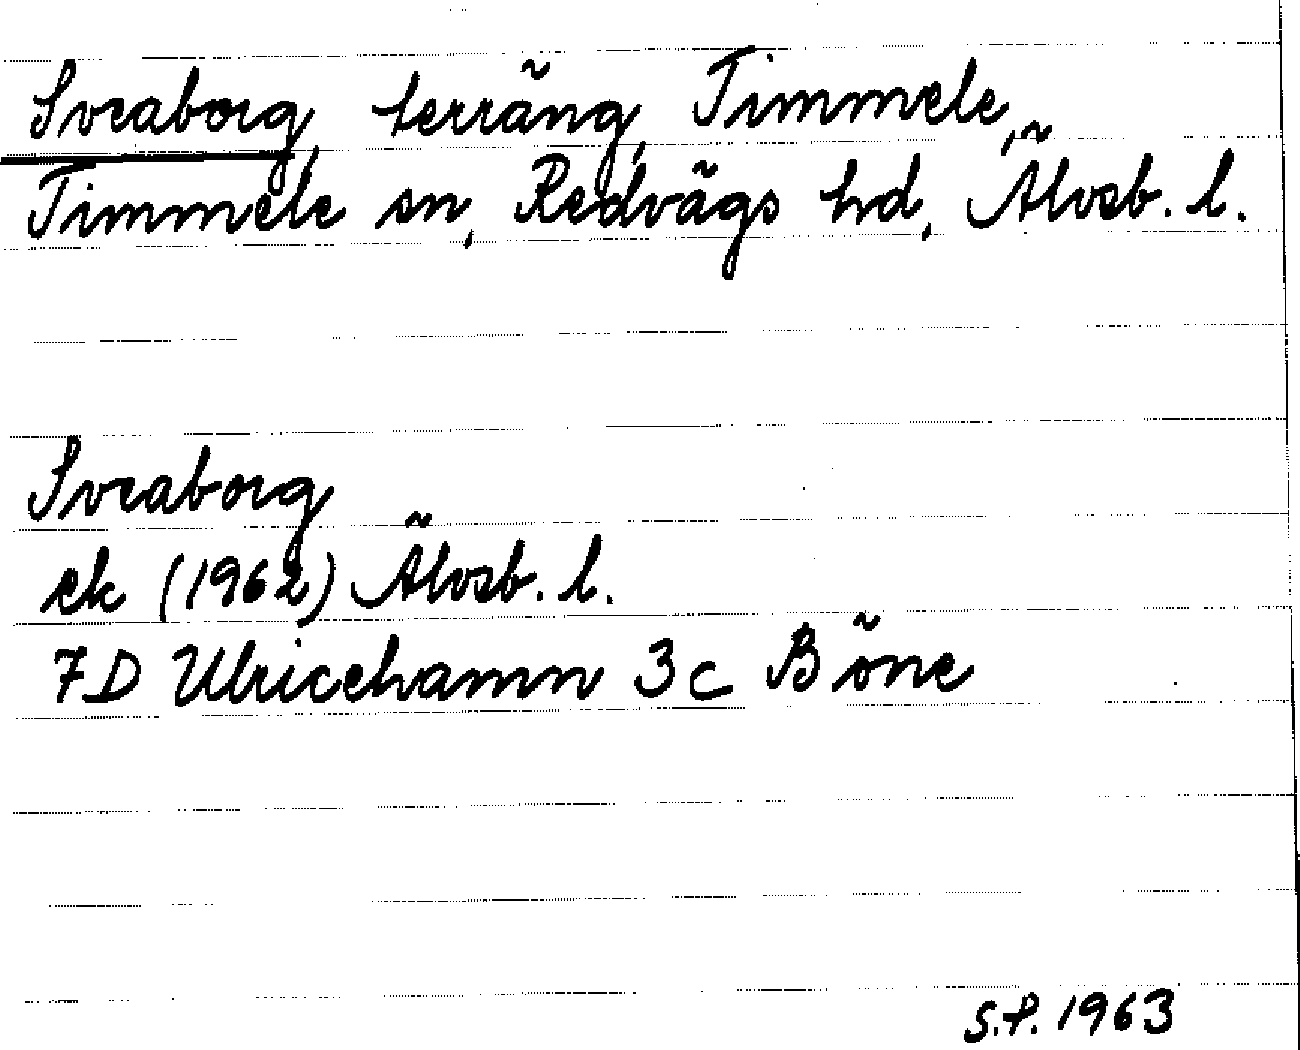 Sveaborg, terräng, Timmele,
Timmele sn, Redvägs hd, Älvsb. l.
Sveaborg
ek (1962) Älvsb. l.
7D Ulricehamn 3c Böne
S.P. 1963